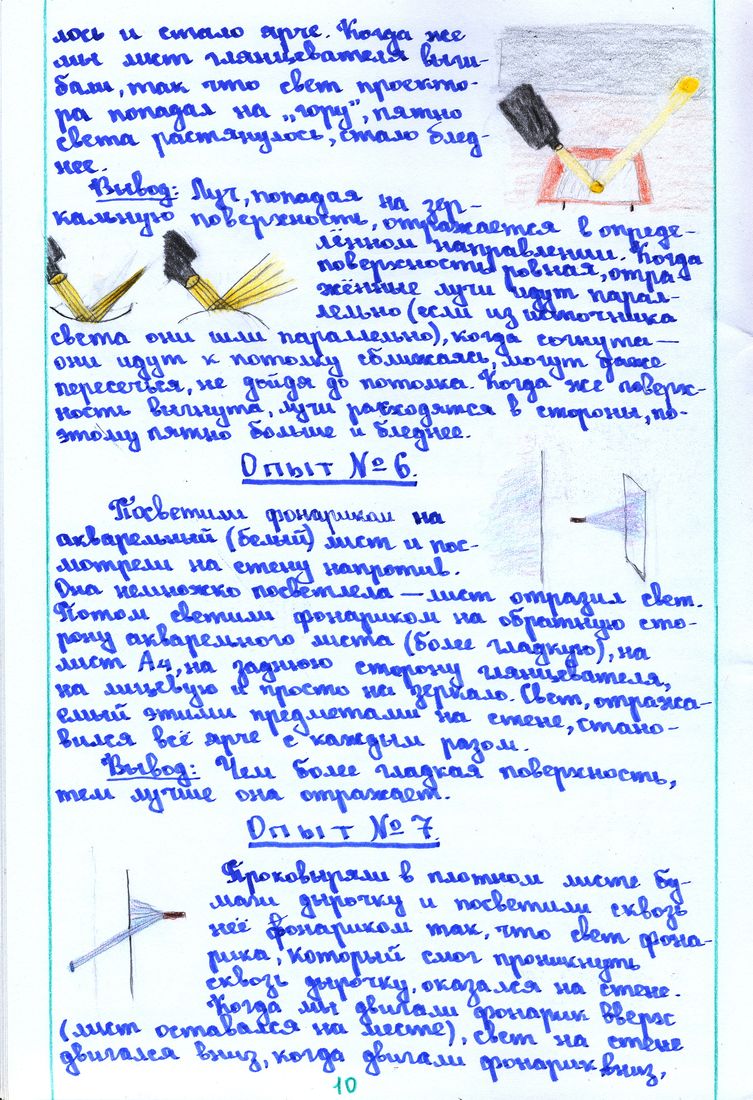 лось и стало ярче. Когда же
мы лист глянцевателя выги-
бали, так что свет проекто-
ра попадал на „гору", пятно
света растянулось, стало блед-
нее.
Вывод: Луч, попадая на зер-
кальную поверхность, отражается в опреде-
лённом направлении. Когда
поверхность ровная, отра-
жённые лучи идут парал-
лельно (если из источника
света они шли параллельно), когда согнута —
они идут к потолку сближаясь, могут даже
пересечься, не дойдя до потолка. Когда же поверх-
ность выгнута, лучи расходятся в стороны, по-
этому пятно больше и бледнее.
Опыт № 6.
Посветили фонариком на
акварельный (белый) лист и пос-
мотрели на стену напротив.
Она немножко посветлела — лист отразил свет.
Потом светили фонариком на обратную сто-
рону акварельного листа (более гладкую), на
лист А4, на заднюю сторону глянцевателя,
на лицевую и просто на зеркало. Свет, отража-
емый этими предметами на стене, стано-
вился всё ярче с каждым разом.
Вывод: Чем более гладкая поверхность,
тем лучше она отражает.
Опыт № 7.
Проковыряли в плотном листе бу-
маги дырочку и посветили сквозь
неё фонариком так, что свет фона-
рика, который смог проникнуть
сквозь дырочку, оказался на стене.
Когда мы двигали фонарик вверх
(лист оставался на месте), свет на стене
двигался вниз, когда двигали фонарик вниз,
10